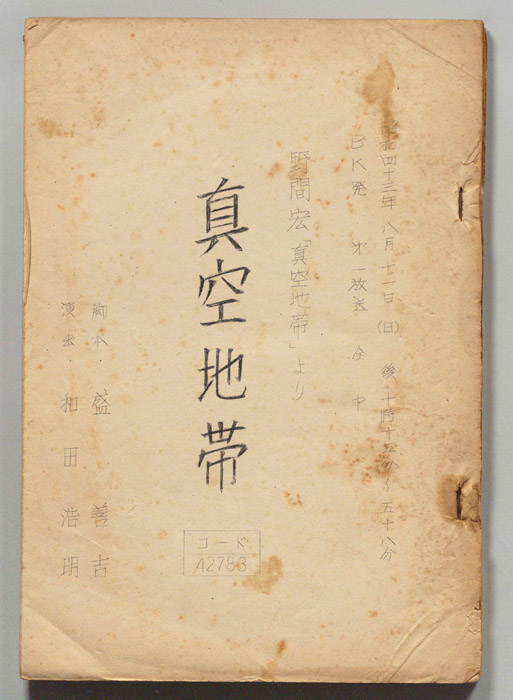 昭和四十三年八月十一日(日)後十時十五分〜五十八分
BK発 第一放送 全中
野間宏「真空地帯」より
真空地帯
脚本・盛善吉
演出・和田浩明
コード
42783